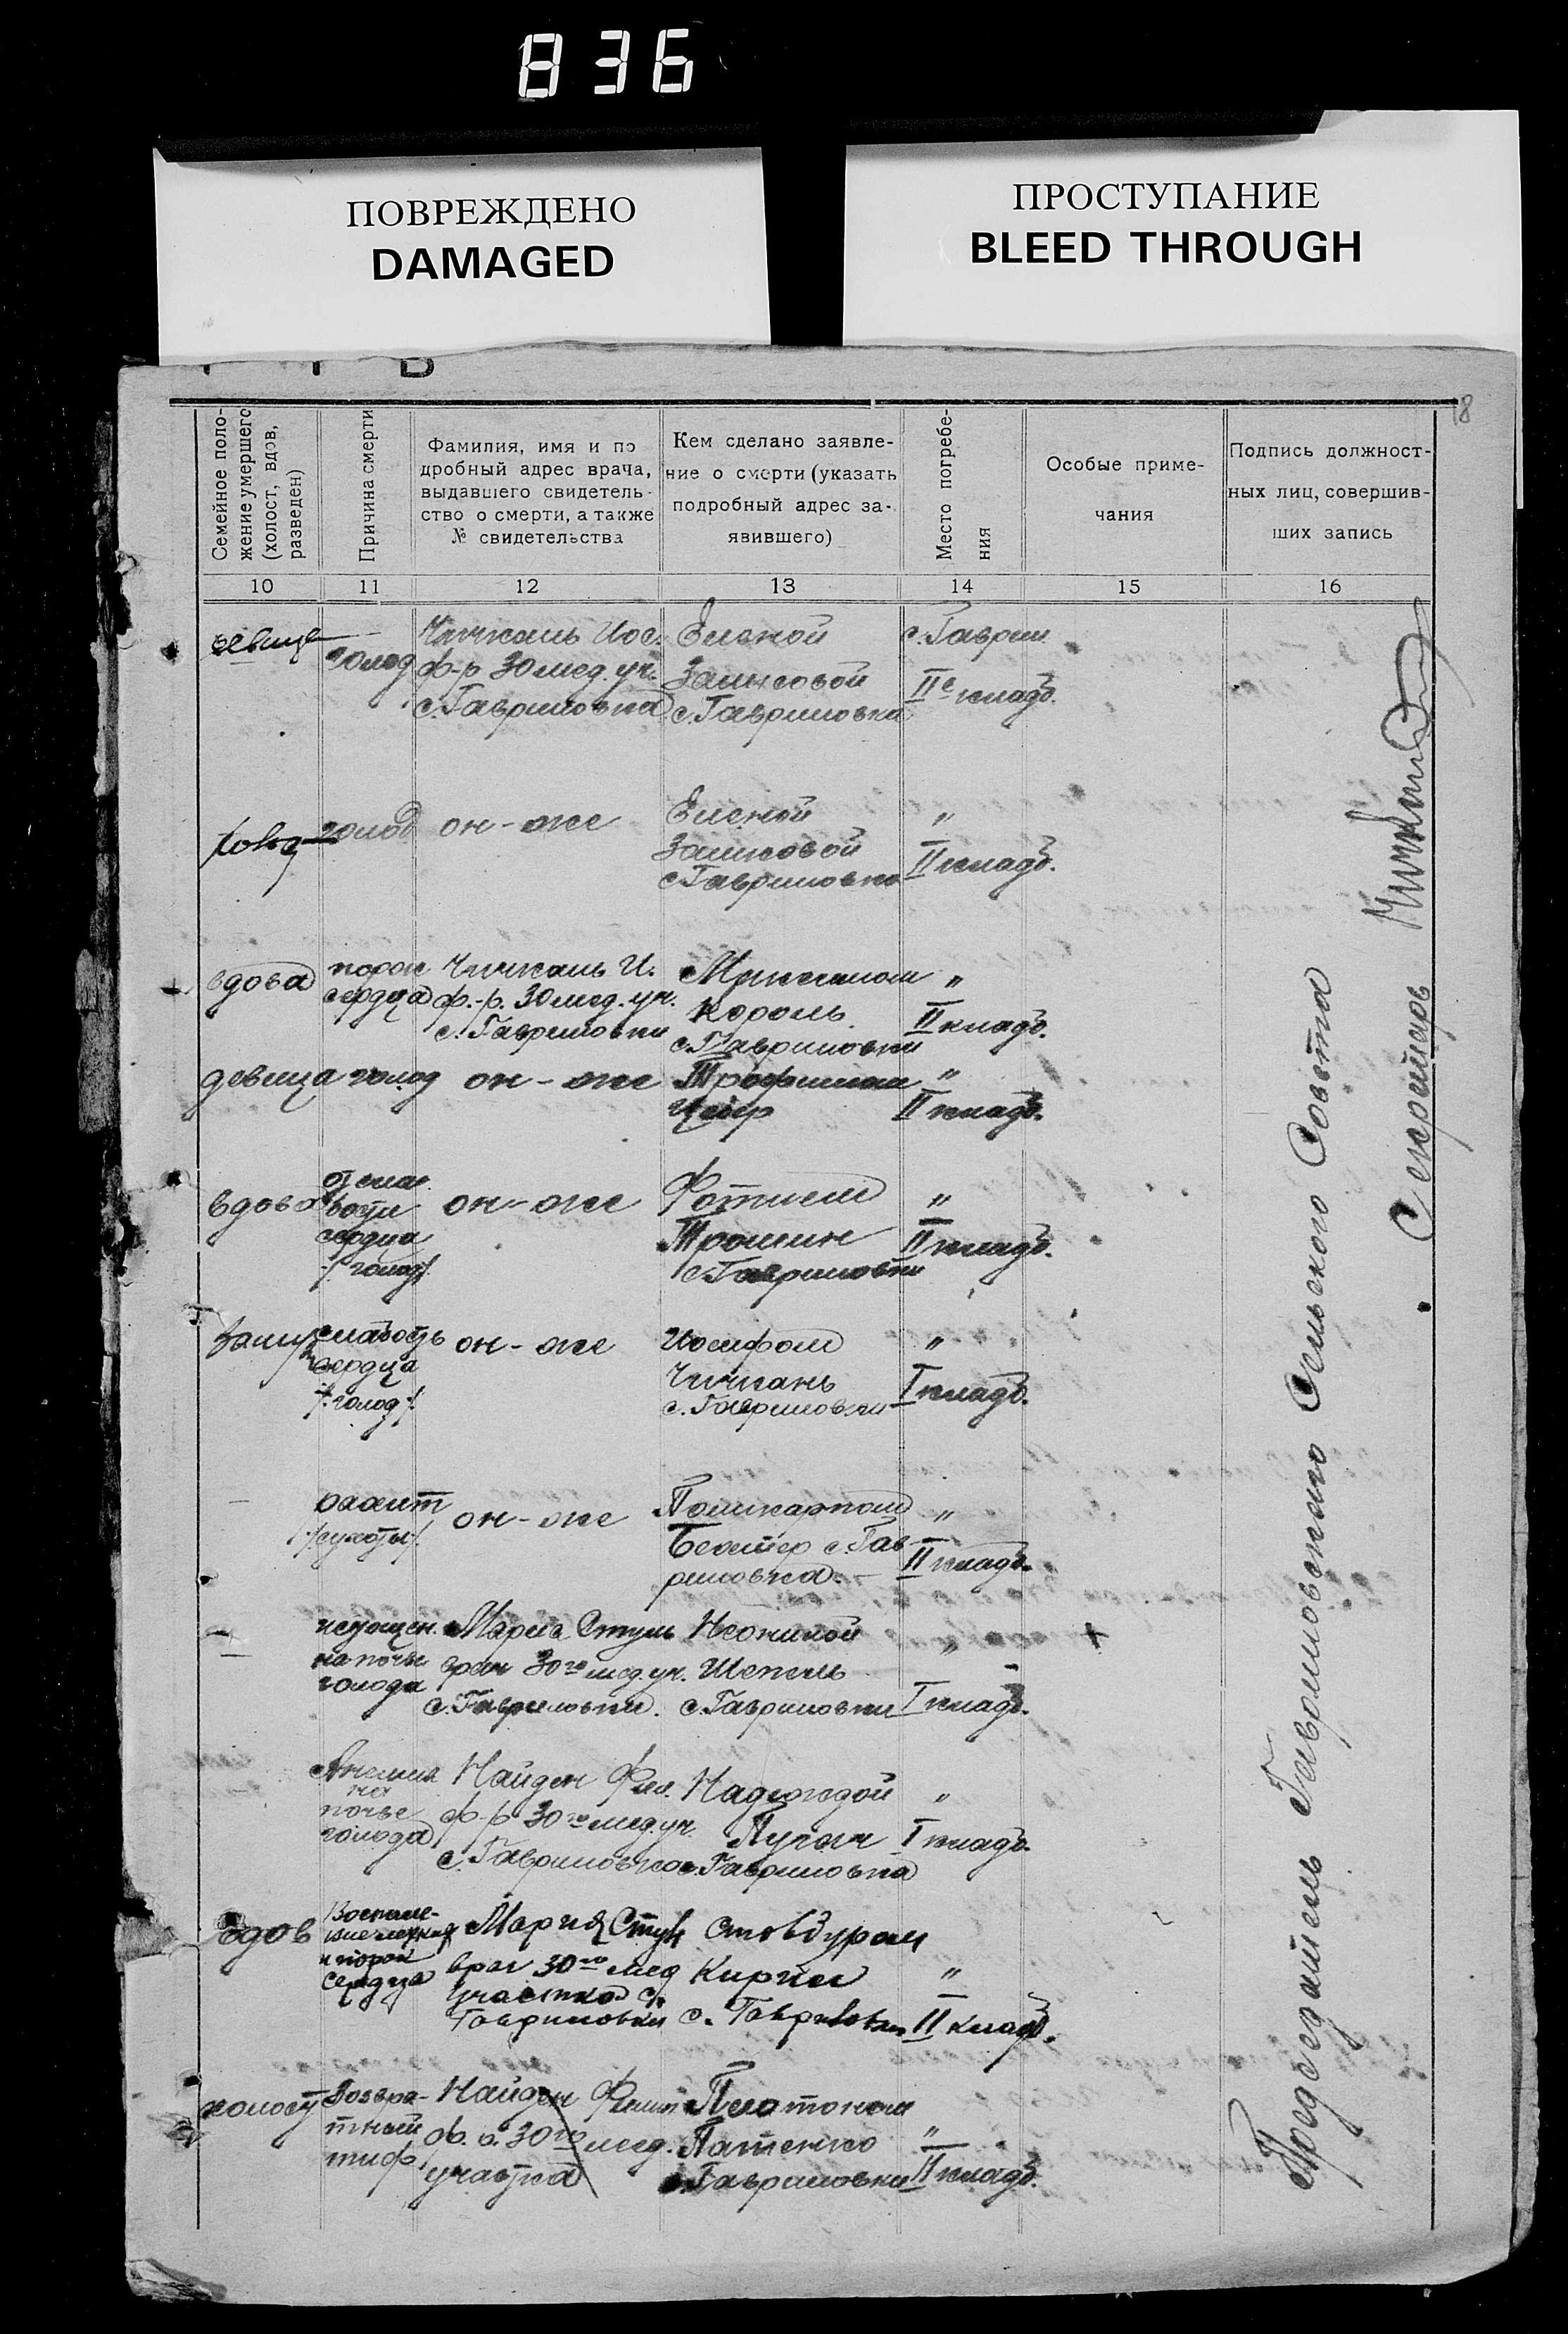 836
ПОВРЕЖДЕНО
DAMAGED
ПРОСТУПАНИЕ
BLEED THROUGH
18
Семейное поло-
жение умершего
(холост, вдов,
разведен)
Причина смерти
Фамилия, имя и по
дробный адрес врача,
выдавшего свидетель-
ство о смерти, а также
№ свидетельства
Кем сделано заявле-
ние о смерти (указать
подробный адрес за-
явившего)
Место погребе-
ния
Особые приме-
чания
Подпись должност-
ных лиц, совершив-
ших запись
10
11
12
13
14
15
16
девица
голод
Чичкань Иос.
ф-р 30 мед. уч.
с. Гавриловка
Еленой
с. Гавриловка
с. Гаврил
II кладб.
голод
он-же
Еленой
с. Гавриловка
"
II кладб.
вдова
порок
сердца
Чичкань И.
ф.-р. 30 мед. уч.
с. Гавриловки
Король
с. Гавриловки
"
II кладб.
девица
голод
он-же
Трофимом
"
II кладб.
вдова
сердца
/голод/.
он-же
Фотием
Трошин
с. Гавриловки
"
II кладб.
слабость
сердца
/голод/.
он-же
Иосифом
Чичкань
с. Гавриловки
"
I кладб.
—
рахит
/сухоты/.
он-же
Поликарпом
с. Гав-
риловка.
"
II кладб.
—
истощен.
на почве
голода
Мария Стуль
врач 30го мед. уч.
с. Гавриловки.
Неонилой
Шепель
с. Гавриловки
"
I кладб.
+
Анемия
на
почве
голода
Найден Фил.
ф-р 30го мед. уч.
с. Гавриловка
Надеждой
Пугач
с. Гавриловка
"
I кладб.
вдов
Воспале-
и порок
сердца
Мария Стуль
врач 30го мед
участка с.
Гавриловки
Кирил
"
II кладб.
холост
Возвра-
тный
тиф
Найден Филип
ф. р. 30го мед.
участка
Платоном
Патенко
Гавриловки
"
II кладб.
Председатель Гавриловского Сельского Совета
Секретарь Чичкань